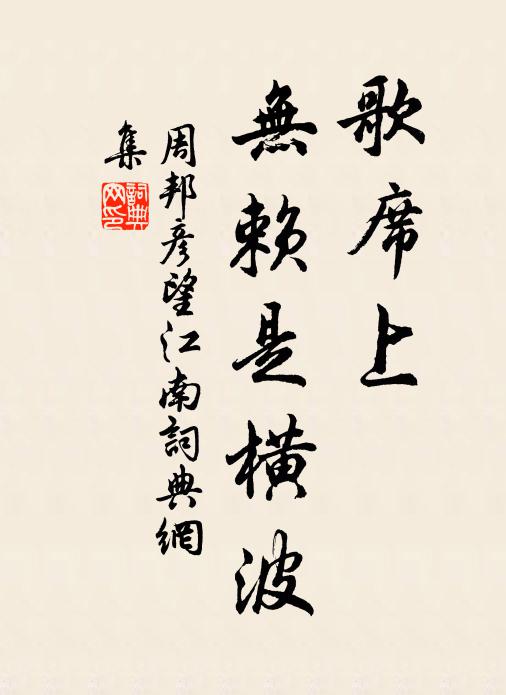 歌席上
無賴是橫波
周邦彥望江南詞典網
集
詞典
网印